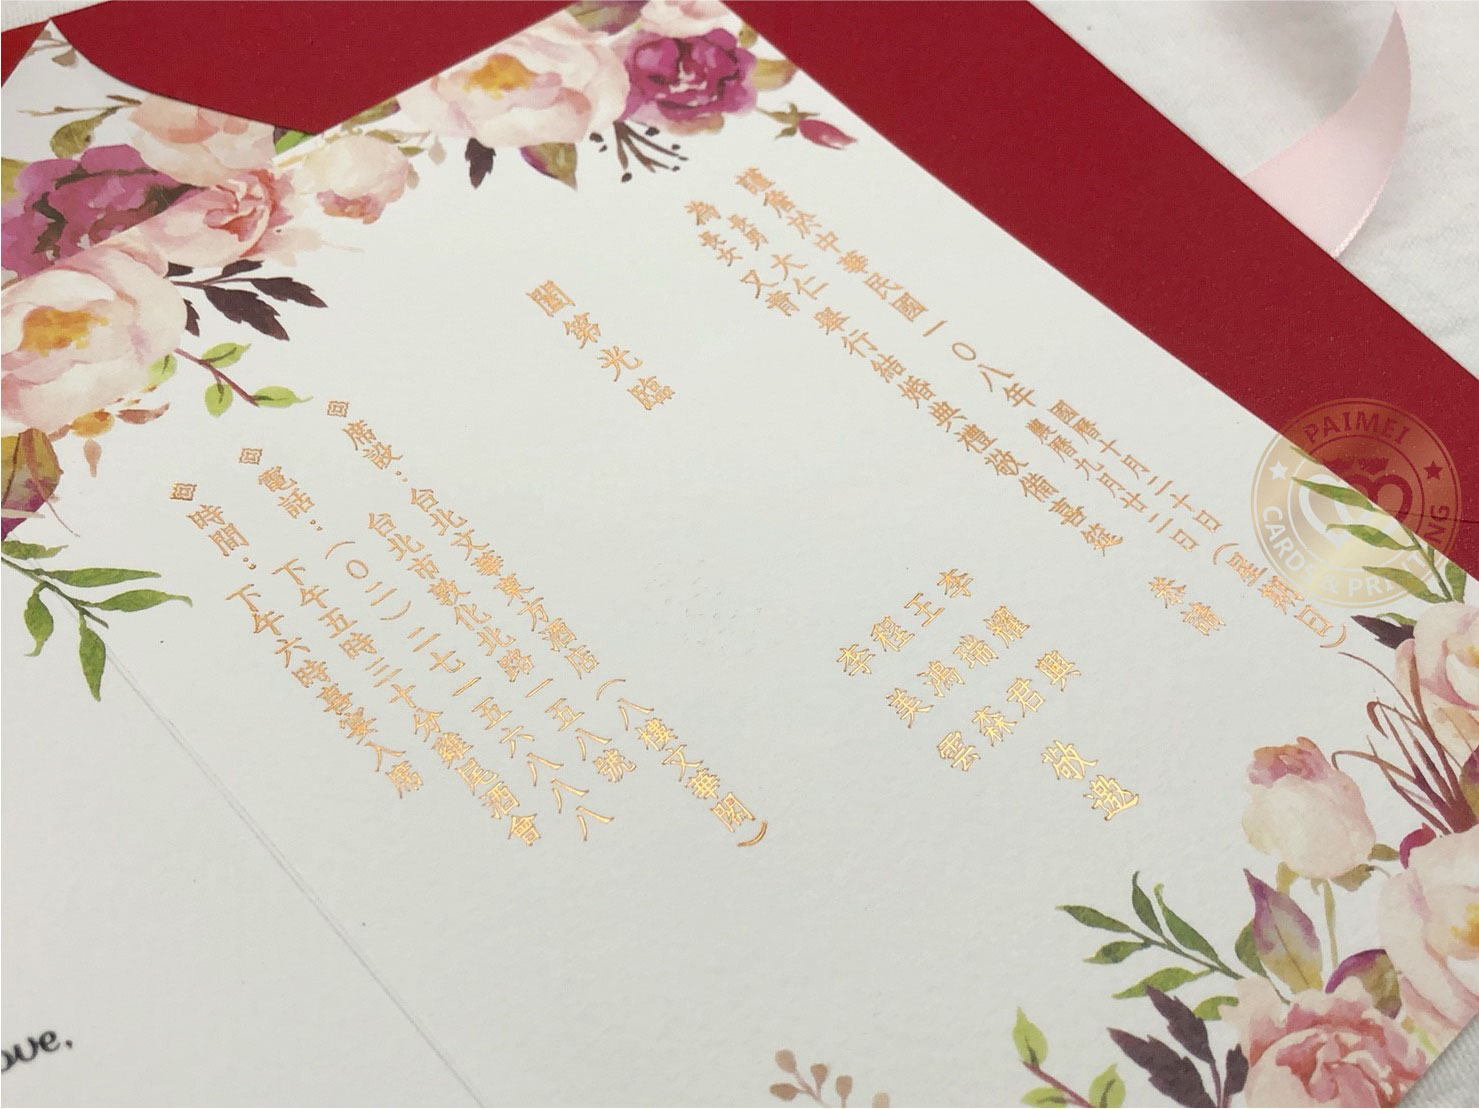 謹詹於中華民國一〇八年 國曆十月二十日 農曆九月廿二日 (星期日)
為 長男 大仁 長女 又青 舉行結婚典禮敬備喜筵 恭請
李耀興
王瑞君
程鴻森
李美雲
敬邀
闔第光臨
席設：台北文華東方酒店（八樓文華閣）
台北市敦化北路一五八號
電話：（〇二）二七一五六八八八
時間：下午五時三十分雞尾酒會
下午六時喜宴入席
ove,
PAIMEI
CARDS & PRINTING